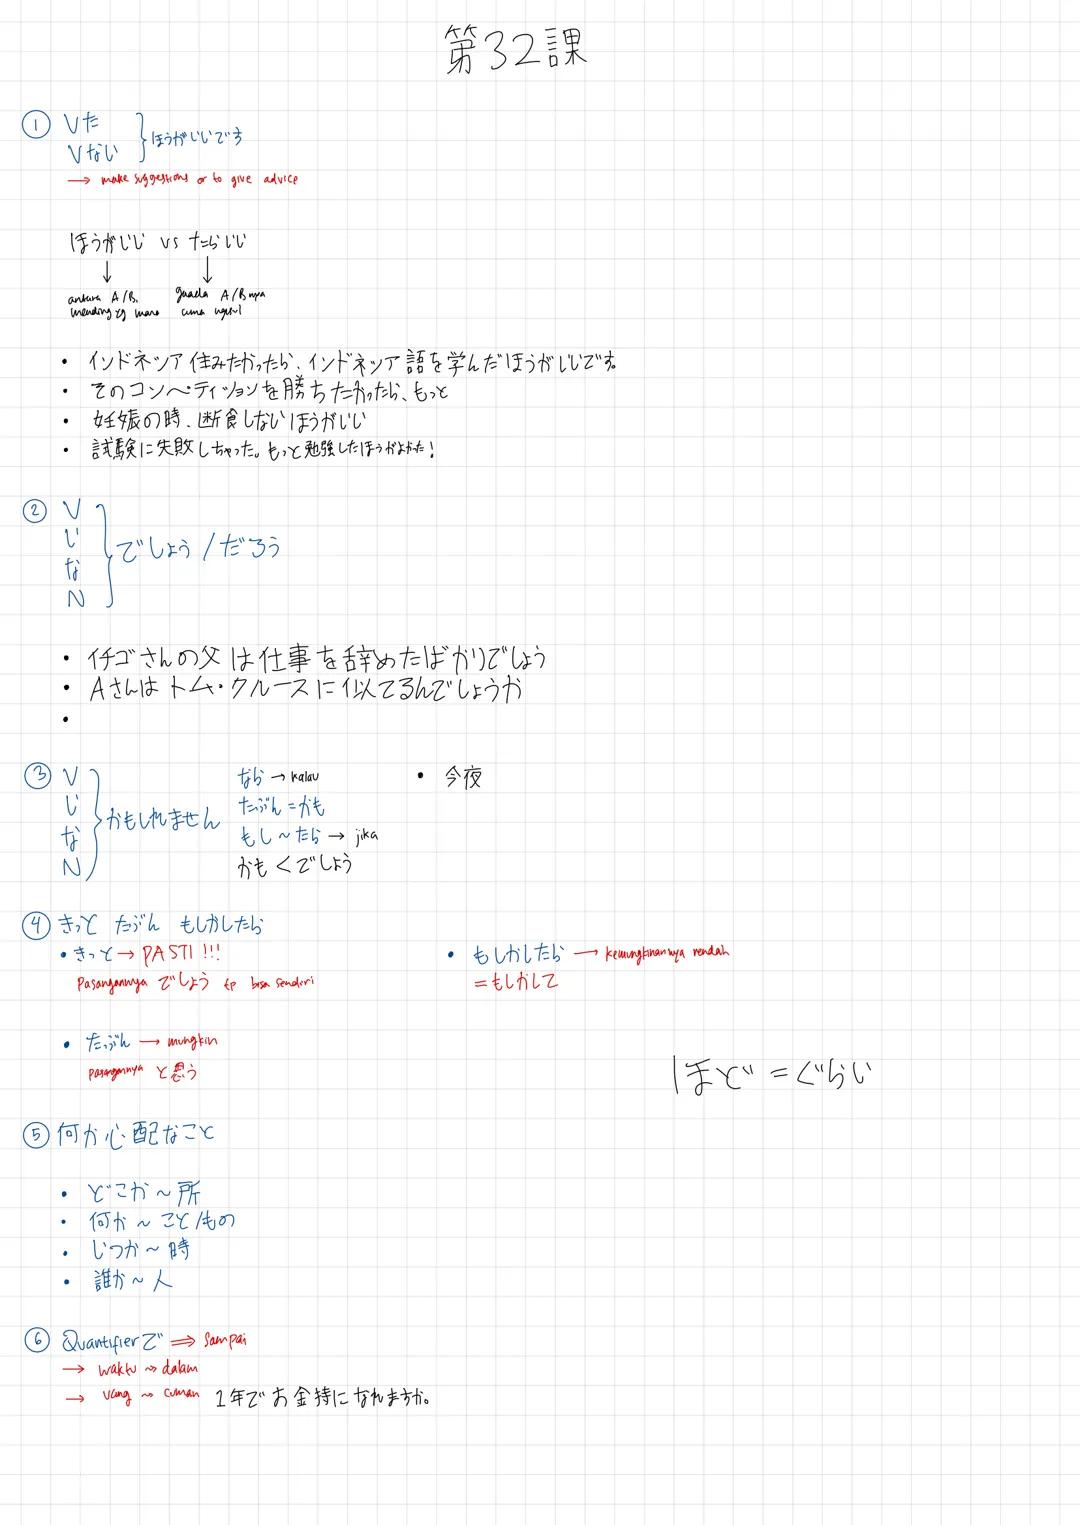 第32課
① Vた
Vない
ほうがいいです
→ make suggestions or to give advice
ほうがいい vs たらいい
antara A/B, mending yg mana
guada A/B nya cuma
• インドネシア住みたかったら、インドネシア語を学んだほうがいいです。
• そのコンペティションを勝ちたかったら、もっと
• 妊娠の時、断食しないほうがいい
• 試験に失敗しちゃった。もっと勉強したほうがよかった!
② V
い
な
N
でしょう / だろう
• イチゴさんの父は仕事を辞めたばかりでしょう
• Aさんはトム・クルースに似てるんでしょうか
•
③ V
い
な
N
かもしれません
なら → kalau
たぶん = かも
もし ~ たら → jika
かも < でしょう
• 今夜
④ きっと たぶん もしかしたら
• きっと → PASTI !!!
Pasangannya でしょう tp bisa sendiri
• もしかしたら → kemungkinannya rendah
= もしかして
• たぶん → mungkin
pasangannya と思う
ほど = ぐらい
⑤ 何か心配なこと
• どこか ~ 所
• 何か ~ こと/もの
• いつか ~ 時
• 誰か ~ 人
⑥ Quantifierで ⇒ sampai
→ waktu ~> dalam
→ uang ~> cuman 1年でお金持になれますか。